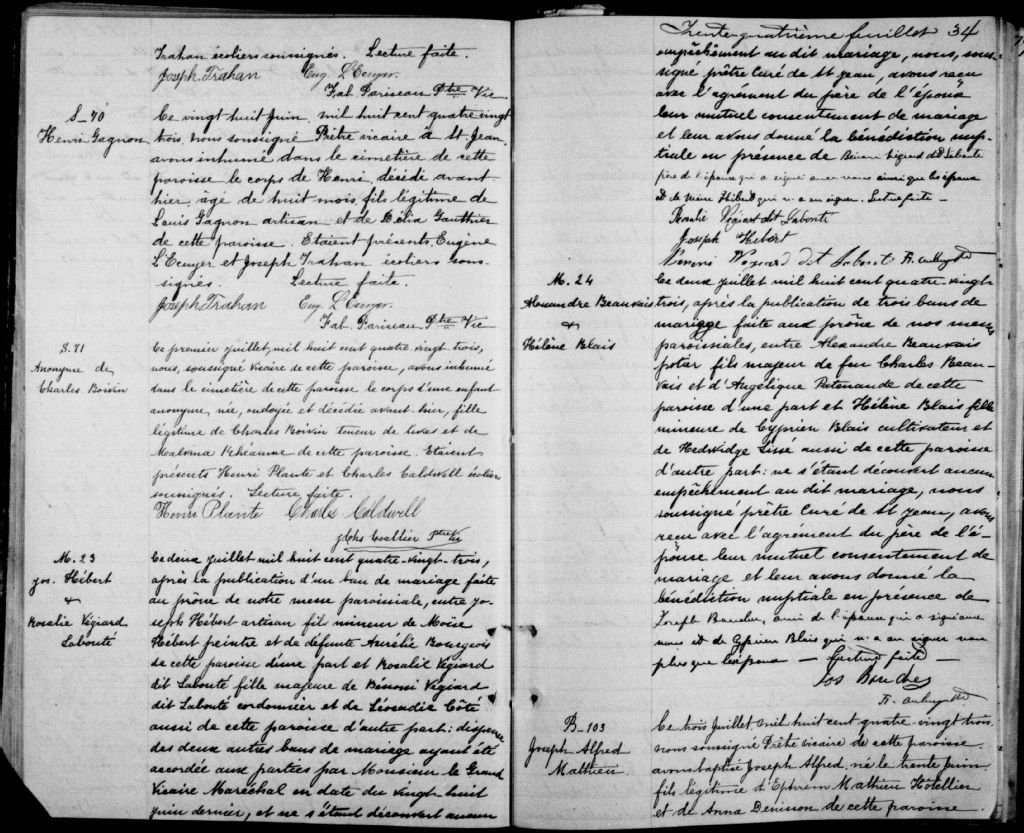 Trahan écoliers soussignés. Lecture faite.
Joseph Trahan Eug. L'Ecuyer.
F.al. Pariseau Ptre Vic
S_70
Henri Gagnon
Ce vingt huit Juin, mil huit cent quatre vingt
trois, nous soussigné Prêtre vicaire à St Jean,
avons inhumé dans le cimetière de cette
paroisse le corps de Henri, décédé avant
hier, âgé de huit mois, fils légitime de
Louis Gagnon artisan et de Délia Gauthier
de cette paroisse. Etaient présents, Eugène
L'Ecuyer et Joseph Trahan écoliers sous-
signés. Lecture faite.
Joseph Trahan Eug. L'Ecuyer.
F.al. Pariseau Ptre Vic
S.71
Anonyme de
Charles Boivin
Ce premier juillet, mil huit cent quatre vingt trois,
nous, soussigné vicaire de cette paroisse, avons inhumé
dans le cimetière de cette paroisse le corps d'une enfant
anonyme, née, ondoyée et décédée avant-hier, fille
légitime de Charles Boivin teneur de livres et de
Malvina Rhéaume de cette paroisse. Etaient
présents Henri Plante et Charles Caldwell écoliers
soussignés. Lecture faite.
Henri Plante Charles Caldwell
Coallier Ptre Vic
M. 23
Jos. Hébert
+
Rosalie Végiard
Labonté
Ce deux juillet mil huit cent quatre-vingt-trois,
après la publication d'un ban de mariage faite
au prône de notre messe paroissiale, entre Jo-
seph Hébert artisan fils mineur de Moïse
Hébert peintre et de défunte Aurélie Bourgeois
de cette paroisse d'une part et Rosalie Végiard
dit Labonté fille majeure de Bénoni Végiard
dit Labonté cordonnier et de Léocadie Côté
aussi de cette paroisse d'autre part: dispense
des deux autres bans de mariage ayant été
accordée aux parties par Monsieur le Grand
Vicaire Maréchal en date du vingt-huit
juin dernier, et ne s'étant découvert aucun
Trente-quatrième feuillet 34
empêchement au dit mariage, nous, sous-
signé prêtre Curé de St Jean, avons reçu
avec l'agrément du père de l'époux
leur mutuel consentement de mariage
et leur avons donné la bénédiction nup-
tiale en présence de Bénoni Végiard dit Labonté
père de l'épouse qui a signé avec nous ainsi que les époux
et de Moïse Hébert qui n'a su signer. Lecture faite—
Rosalie Végiard dit Labonté
Joseph Hébert
Benoni Vegiard dit Labonté
M. 24
Alexandre Beauvais
+
Hélène Blais
Ce deux juillet mil huit cent quatre-vingt-
trois, après la publication de trois bans de
mariage faite aux prône de nos messes
paroissiales, entre Alexandre Beauvais
potier fils majeur de feu Charles Beau-
vais et d'Angélique Patenaude de cette
paroisse d'une part et Hélène Blais fille
mineure de Cyprien Blais cultivateur et
de Hedwidge Lissé aussi de cette paroisse
d'autre part: ne s'étant découvert aucun
empêchment au dit mariage, nous
soussigné prêtre Curé de St Jean, avons
reçu avec l'agrément du père de l'é-
pouse leur mutuel consentement de
mariage et leur avons donné la
bénédiction nuptiale en présence de
Joseph ami de l'époux qui a signé avec
nous et de Cyprien Blais qui n'a su signer non
plus que les époux — Lecture faite —
Jos
B_103
Joseph Alfred
Mathieu
Ce trois Juillet mil huit cent quatre vingt trois.
nous soussigné Prêtre vicaire de cette paroisse
avons baptisé Joseph Alfred, né le trente Juin
fils légitime d'Ephrem Mathieu Hôtellier
et de Anna Denison de cette paroisse